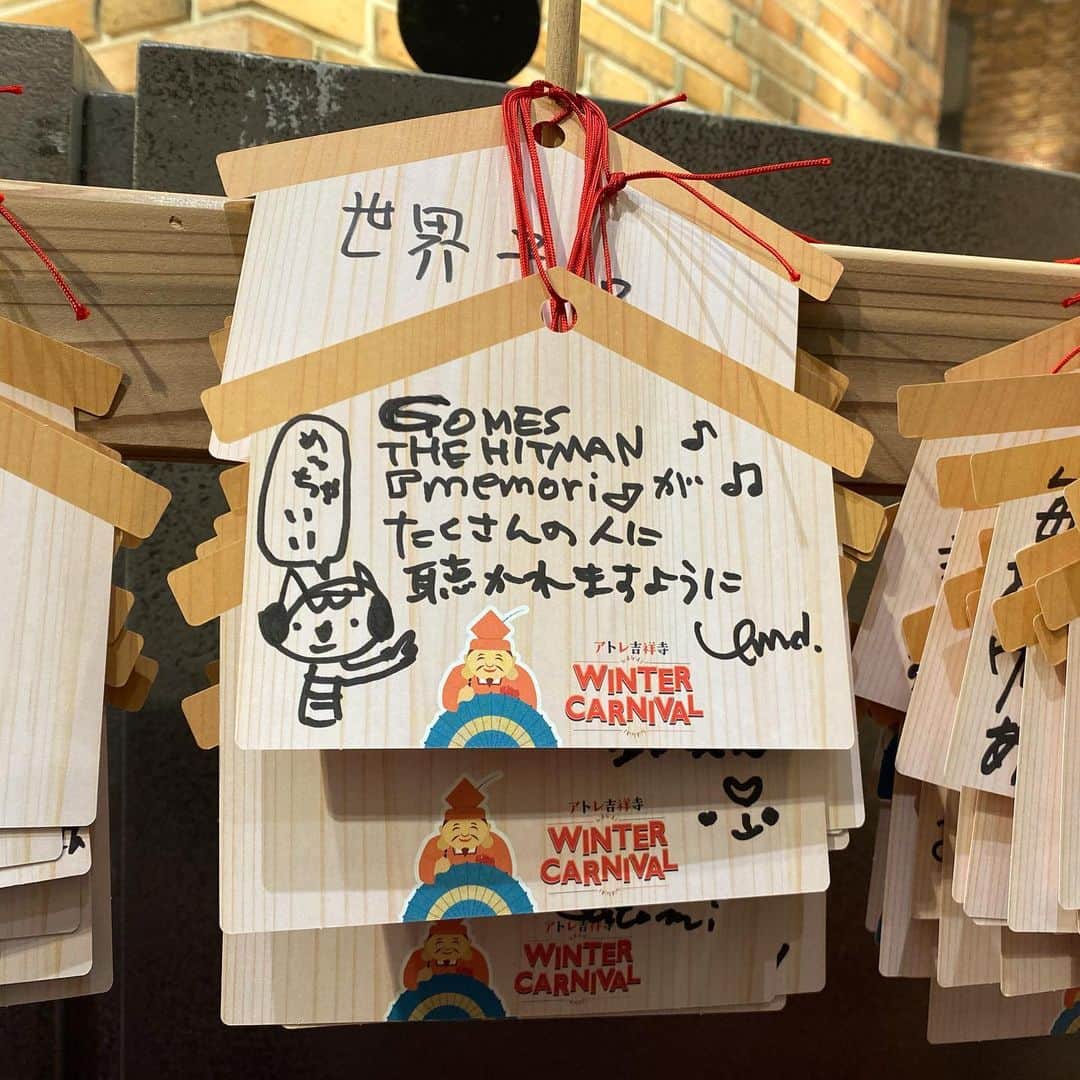 世界
GOMES
THE HITMAN
『memori』が
たくさんの人に
聴かれますように
めっちゃ
いい
アトレ吉祥寺
WINTER
CARNIVAL
アトレ吉祥寺
WINTER
CARNIVAL
アトレ吉祥寺
WINTER
CARNIVAL